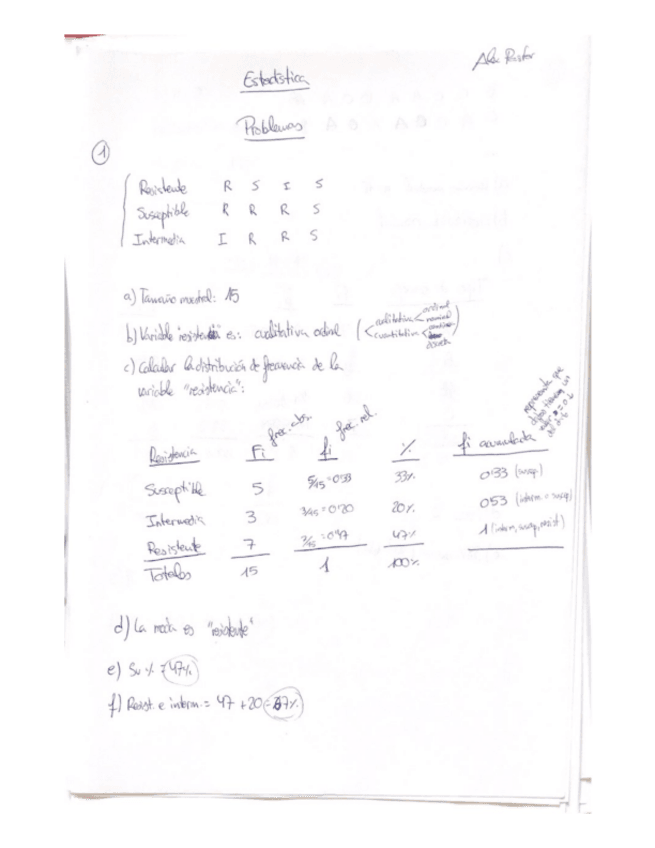 Estadística
Problemas
1
Resistente R S I S
Susceptible R R R S
Intermedia I R R S
a) Tamaño muestral: 15
b) Variable "resistencia" es: cualitativa ordinal (cualitativa < ordinal nominal
cuantitativa < discreta
c) Calcular la distribución de frecuencia de la
variable "resistencia":
frec. abs. frec. rel.
Resistencia Fi fi % fi acumulada
Susceptible 5 5/15 = 0'33 33% 0'33 (suscp)
Intermedia 3 3/15 = 0'20 20% 0'53 (interm. + suscep)
Resistente 7 7/15 = 0'47 47% 1 (interm, suscep, resist)
Totales 15 1 100%
d) La moda es "resistente"
e) Su % = 47%
f) Resist. e interm. = 47 + 20 = 67%